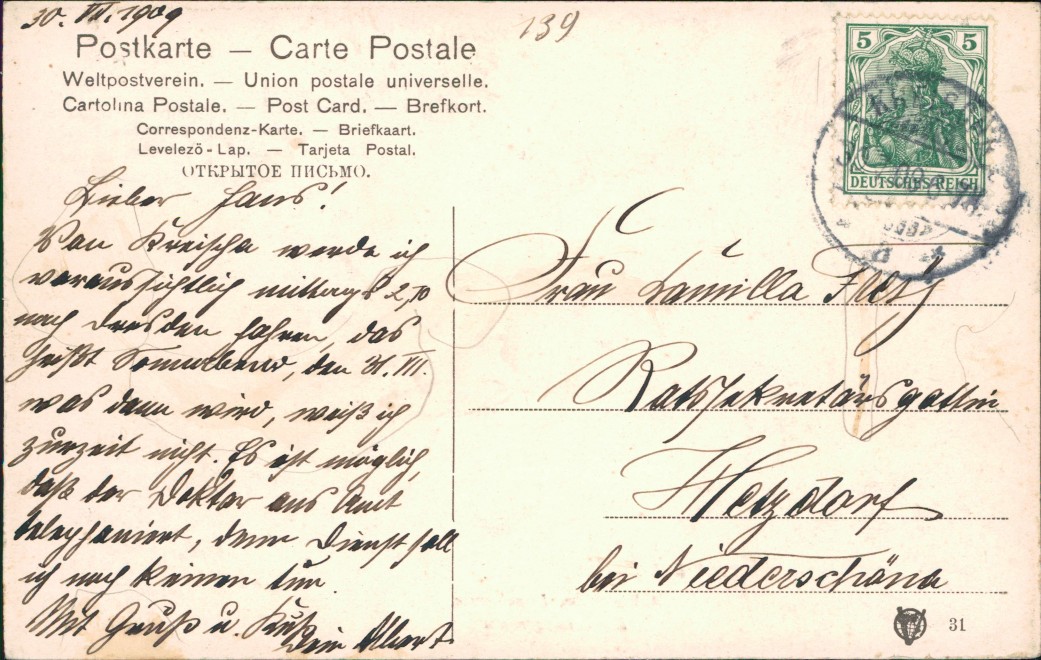 30. VII. 1909
139
Postkarte — Carte Postale
Weltpostverein. — Union postale universelle.
Cartolina Postale. — Post Card. — Brefkort.
Correspondenz-Karte. — Briefkaart.
Levelező-Lap. — Tarjeta Postal.
ОТКРЫТОЕ ПИСЬМО.
5 5
DEUTSCHES REICH
Lieber Hans!
Von Kreischa werde ich
voraussichtlich mittags 2,10
nach Dresden fahren, das
heißt Sonnabend, den 31. VII.
was dann wird, weiß ich
zurzeit nicht. Es ist möglich,
daß der Doktor ans Amt
telephoniert, denn Dienst soll
ich noch keinen tun.
Mit Gruß u. Kuß
Dein Albert
Frau Camilla
Ratssekretärsgattin
Hetzdorf
bei Niederschöna
31